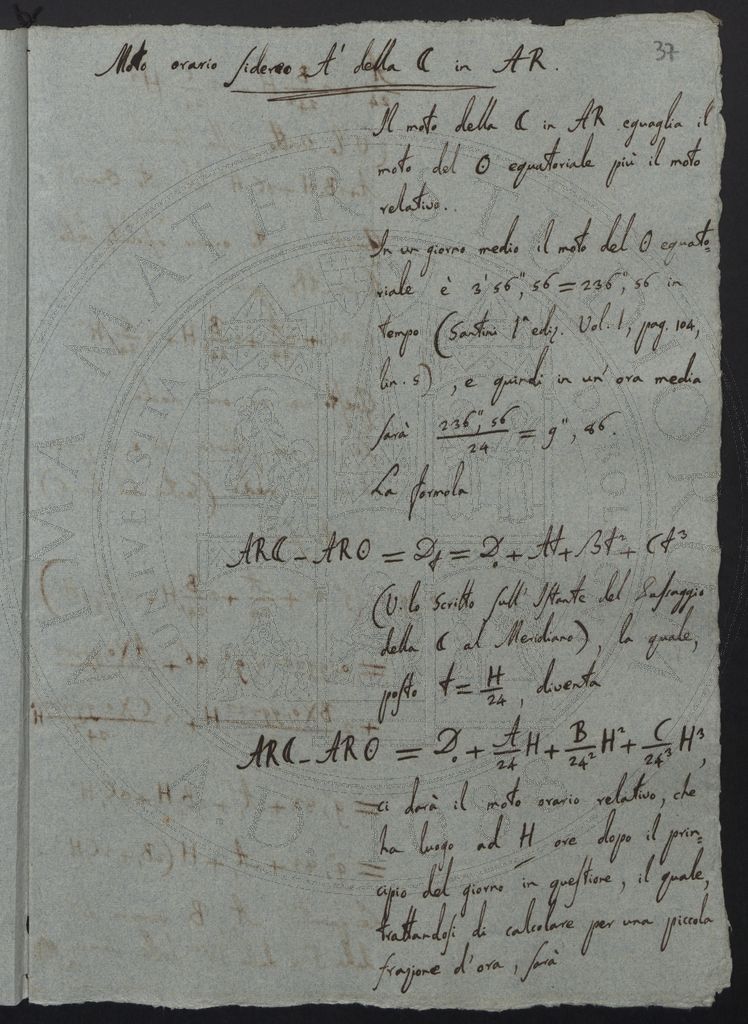 37
Moto orario sidereo A' della ☾ in AR.
Il moto della ☾ in AR eguaglia il
moto del ʘ equatoriale più il moto
relativo..
In un giorno medio il moto del ʘ equato=
riale è 3' 56", 56 = 236", 56 in
tempo (Santini 1ª ediz. Vol. 1, pag. 104,
lin. 5), e quindi in un' ora media
sarà 236", 56 / 24 = 9", 86.
La formola
AR☾ – ARʘ = Dₜ = D₀ + At + Bt² + Ct³
(V. lo Scritto sull' Istante del Passaggio
della ☾ al Meridiano), la quale,
posto t = H/24, diventa
AR☾ – ARʘ = D₀ + A/24 H + B/24² H² + C/24³ H³,
ci darà il moto orario relativo, che
ha luogo ad H ore dopo il prin=
cipio del giorno in questione, il quale,
trattandosi di calcolare per una piccola
frazione d'ora, sarà